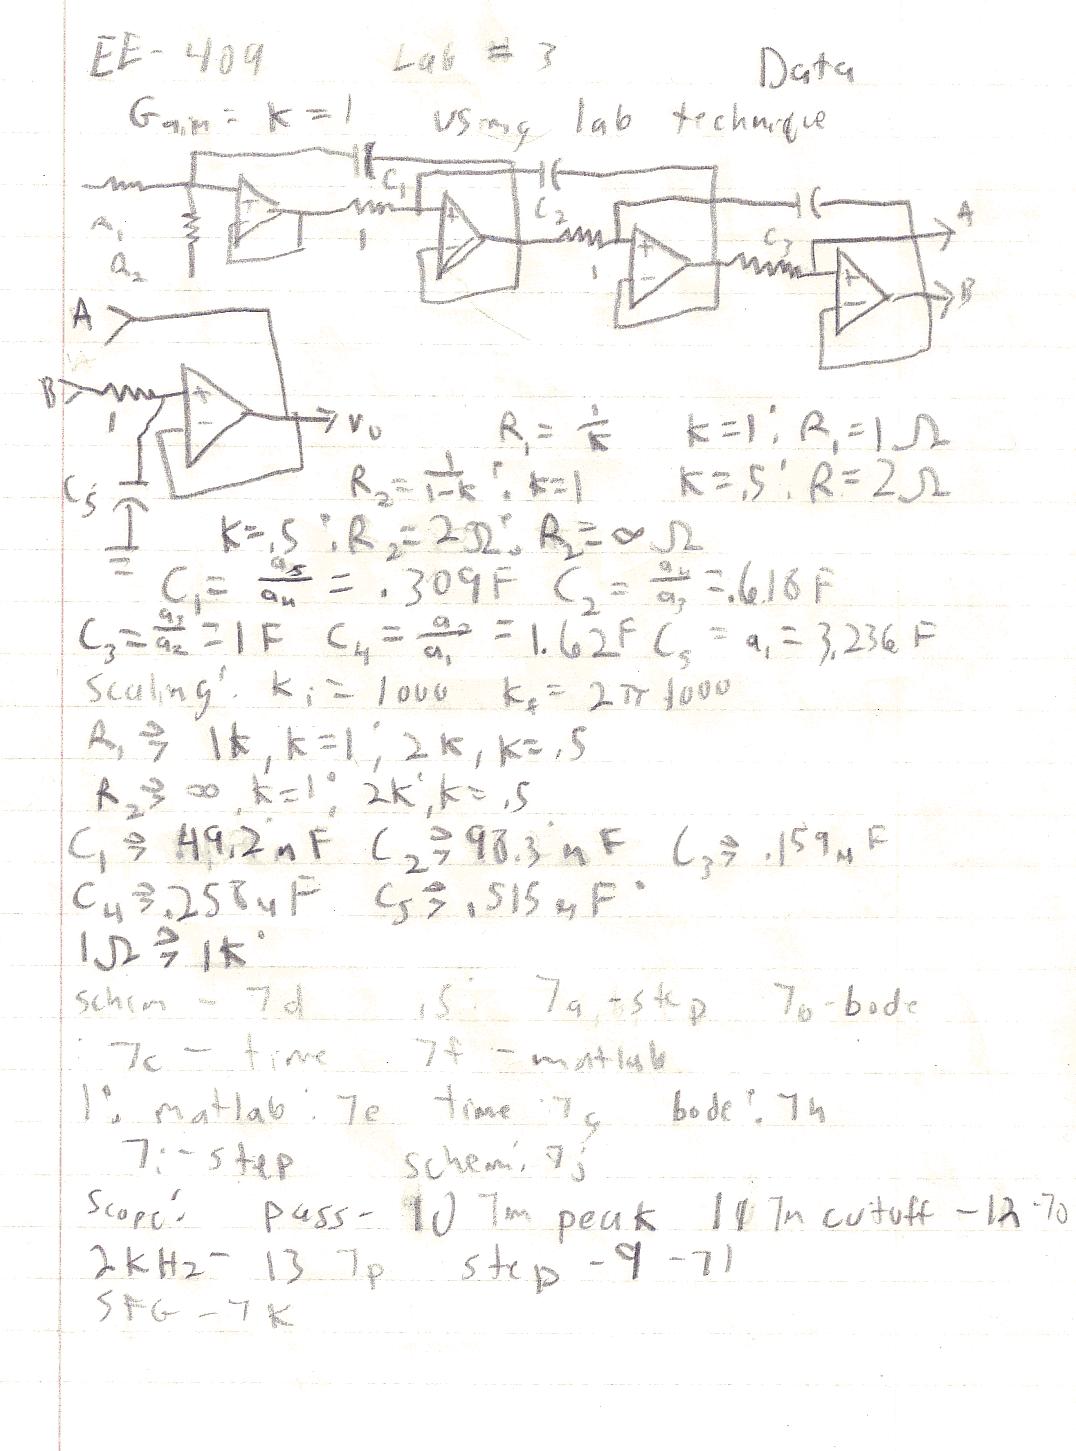 EE-409 Lab # 3 Data
Gain = K = 1 using lab technique
+ - 1 C1 + - C2 1 + - C3 + - A B
R1
R2
A
B 1 + - Vo
C5
R1 = 1/K K=1: R1 = 1Ω
R2 = 1/1-K : K=1 K=.5: R=2Ω
K=.5: R2=2Ω: R2=∞Ω
C1 = a5/a4 = .309F C2 = a4/a3 = .618F
C3 = a3/a2 = 1F C4 = a2/a1 = 1.62F C5 = a1 = 3.236F
Scaling: Ki = 1000 Kf = 2π1000
R1 ⇒ 1K, K=1; 2K, K=.5
R2 ⇒ ∞, K=1; 2K, K=.5
C1 ⇒ 49.2nF C2 ⇒ 98.3nF C3 ⇒ .159uF
C4 ⇒ .258uF C5 ⇒ .515uF
1Ω ⇒ 1K
schem - 7d .5: 7a - step 7b - bode
7c - time 7f - matlab
1: matlab: 7e time: 7g bode: 7h
7i - step schem: 7j
Scope: pass - 10 7m peak 11 7n cutoff - 12 - 7o
2KHz - 13 7p step - 9 - 7l
SFG - 7K